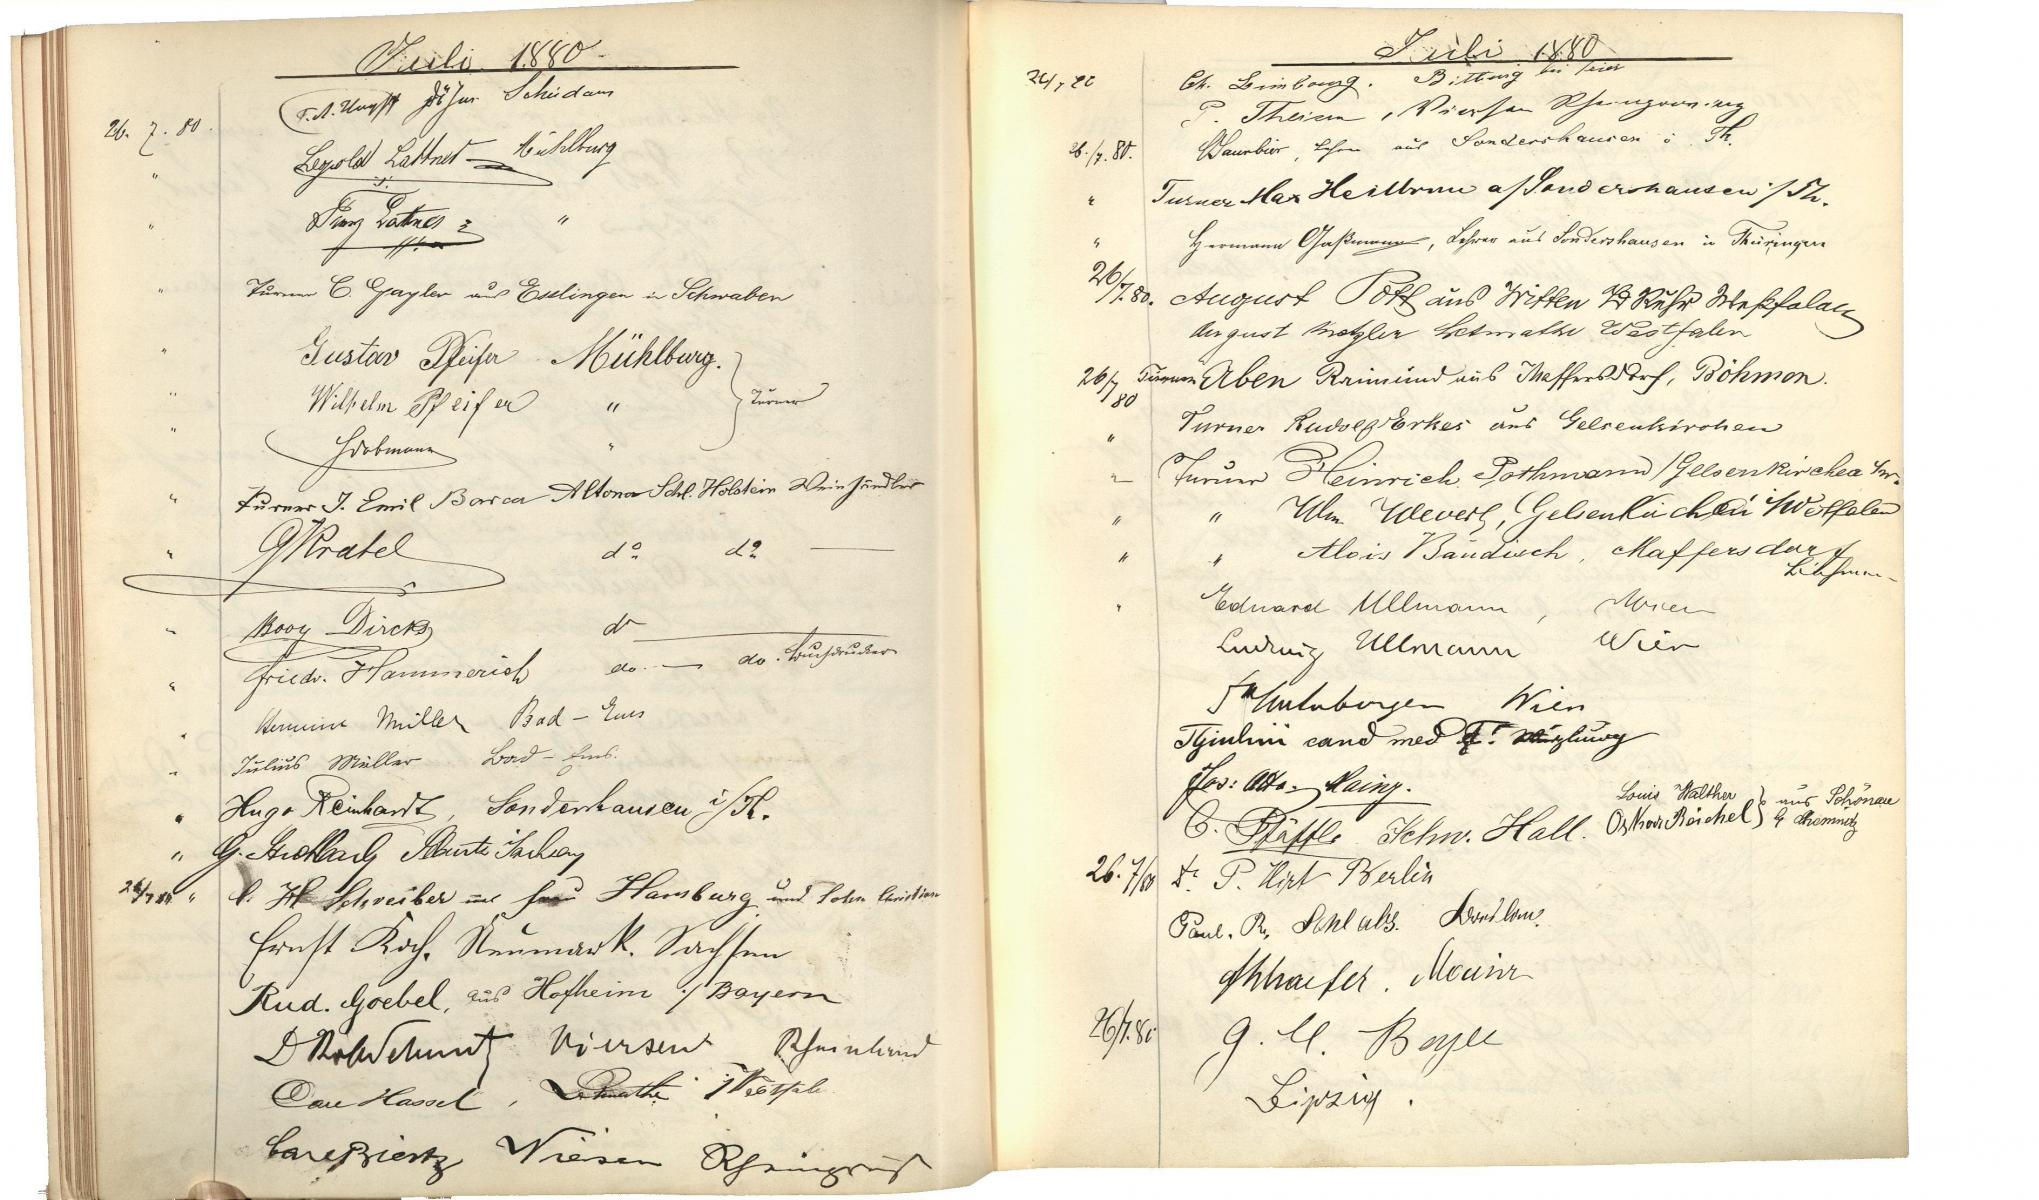 Juli 1880
Schiedam
26. 7. 80. Leopold Lattner Mühlburg
" Franz Lattner "
" Turner C. Gayler aus Esslingen in Schwaben
" Gustav Pfeifer Mühlburg.
" Wilhelm Pfeifer " Turner
" Hobmann "
" Turner J. Emil Altona Schl. Holstein Weinhändler
" G Kratel do do
" Booy Dircks do
" Friedr. Hammerich do. do. Buchdrucker
" Hermine Müller Bad-Ems
" Julius Müller Bad-Ems.
" Hugo Reinhardt, Sondershausen i/Th.
" G.
26/7 80 " Schreiber Hamburg und Sohn Christian
Ernst Koch. Neumark. Sachsen
Rud. Goebel, aus Hofheim i/Bayern
Viersen Rheinland
Carl Hassel, Letmathe i/Westfale
Carl Viersen Rheinpreuß
Juli 1880
26/7 80 Ch. Limbourg. Bitburg bei Trier
P. Theisen, Viersen Rheinprovinz
26./7. 80. Lehrer aus Sondershausen i. Th.
" Turner Max Heilbrun a/Sondershausen i/Th.
" Hermann Gaßmann, Lehrer aus Sondershausen in Thüringen
26/7. 80. August Pott aus Witten Ruhr Westfalen
August Metzler Letmathe Westfalen
26/7 80 Turner Aben Raimund aus Maffersdorf, Böhmen.
" Turner Rudolf Erkes aus Gelsenkirchen
" Turner Heinrich Pothmann / Gelsenkirchen
" " Wlm. Wevert, Gelsenkirchen i/Westfalen
" " Alois Baudisch, Maffersdorf
Böhmen
" Eduard Ullmann, Wien
Ludwig Ullmann Wien
Wien
cand med Würzburg
Jos: Otto. Mainz.
Louis Walther
Oskar Reichel aus Schönau
b/ Chemnitz
C. Pfäffle Schw. Hall.
26. 7/80 Dr. P. Hirt Berlin
Paul. R. Breslau.
Schaefer. Mainz
26/7. 80 G. A. Beyer
Leipzig.